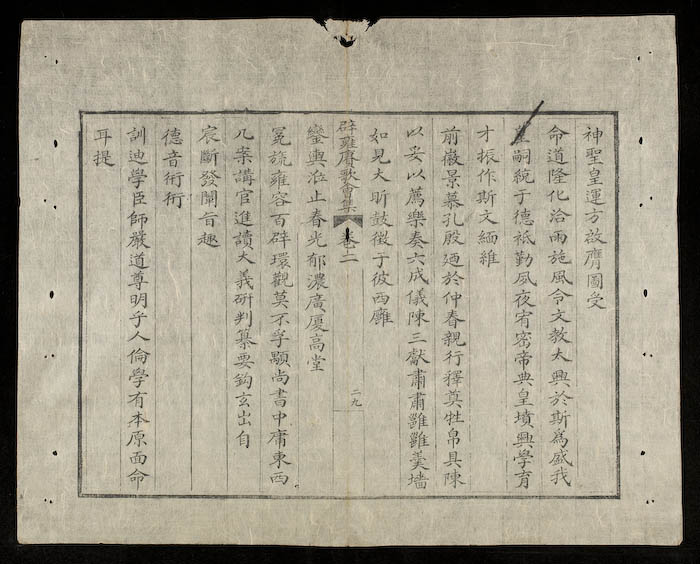 神聖皇運方啟膺圖受
命道隆化洽雨施風令文教大興於斯為盛我
嗣統于德祗勤夙夜宥密帝典皇墳興學育
才振作斯文緬維
前徽景慕孔殷廼於仲春親行釋奠牲帛具陳
以妥以薦樂奏六成儀陳三獻肅肅雝雝羹墻
如見大昕鼓徵于彼西廱
辟雍賡歌會集 卷二
二九
鑾輿涖止春光郁濃廣厦高堂
冕旒雍容百辟環觀莫不孚顒尚書中庸東西
几案講官進讀大義研判纂要鉤玄出自
宸斷發闡旨趣
德音衎衎
訓迪學臣師嚴道尊明乎人倫學有本原面命
耳提